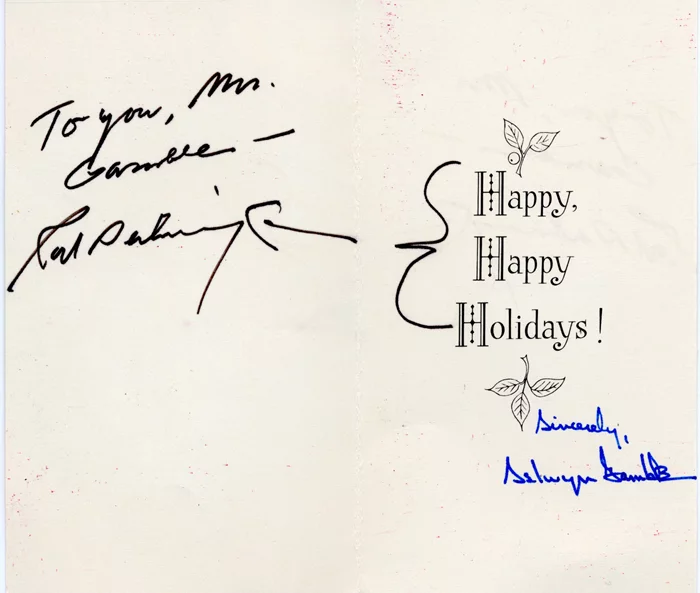 To you, Mr.
Gamble —
Rod Serling
Happy,
Happy
Holidays!
Sincerely,
Selwyn Gamble